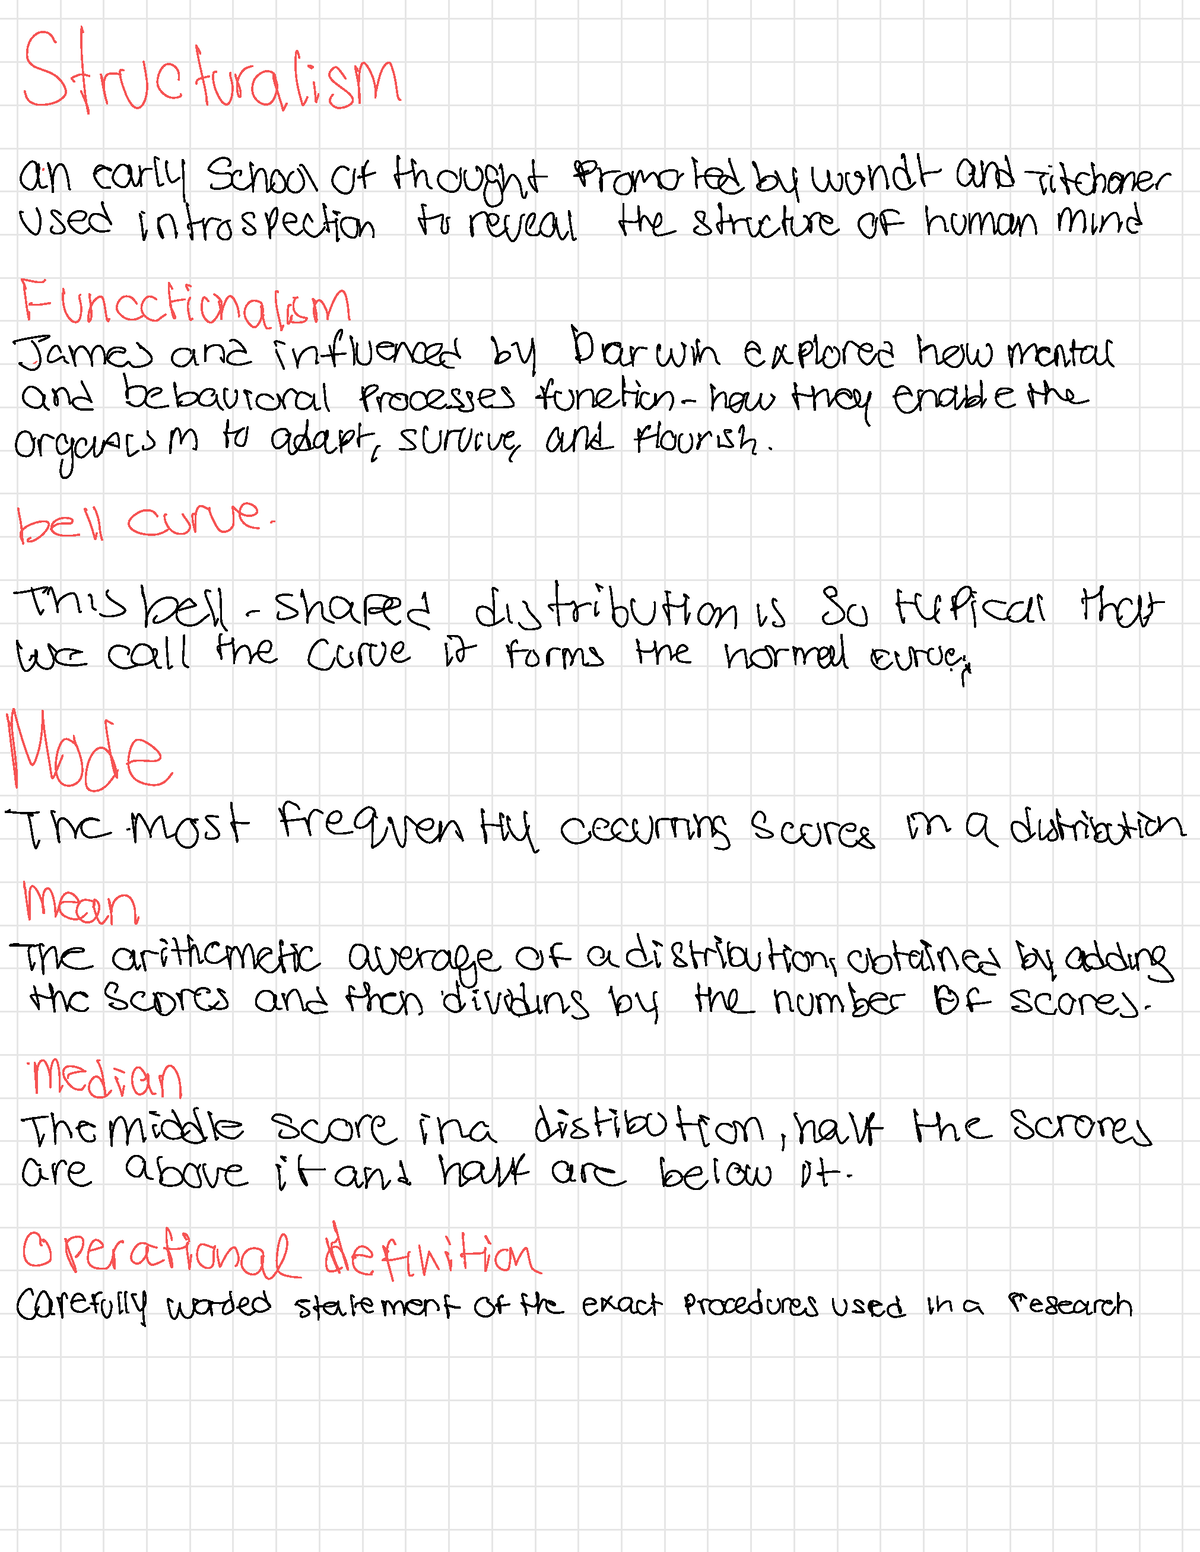 Structuralism
an early School of thought Promoted by wundt and Titchener
used introspection to reveal the structure of human mind
Funcctionalism
James and influenced by Darwin explored how mental
and behavioral Processes function - how they enable the
organism to adapt, survive, and flourish.
bell curve.
This bell-shaped distribution is so typical that
we call the curve it forms the normal curve,
Mode
The most frequently occurring scores in a distribution
mean
The arithemetic average of a distribution, obtained by adding
the scores and then dividing by the number OF scores.
median
The middle score in a distibution, half the scrores
are above it and half are below it.
Operational definition
Carefully worded statement of the exact procedures used in a research